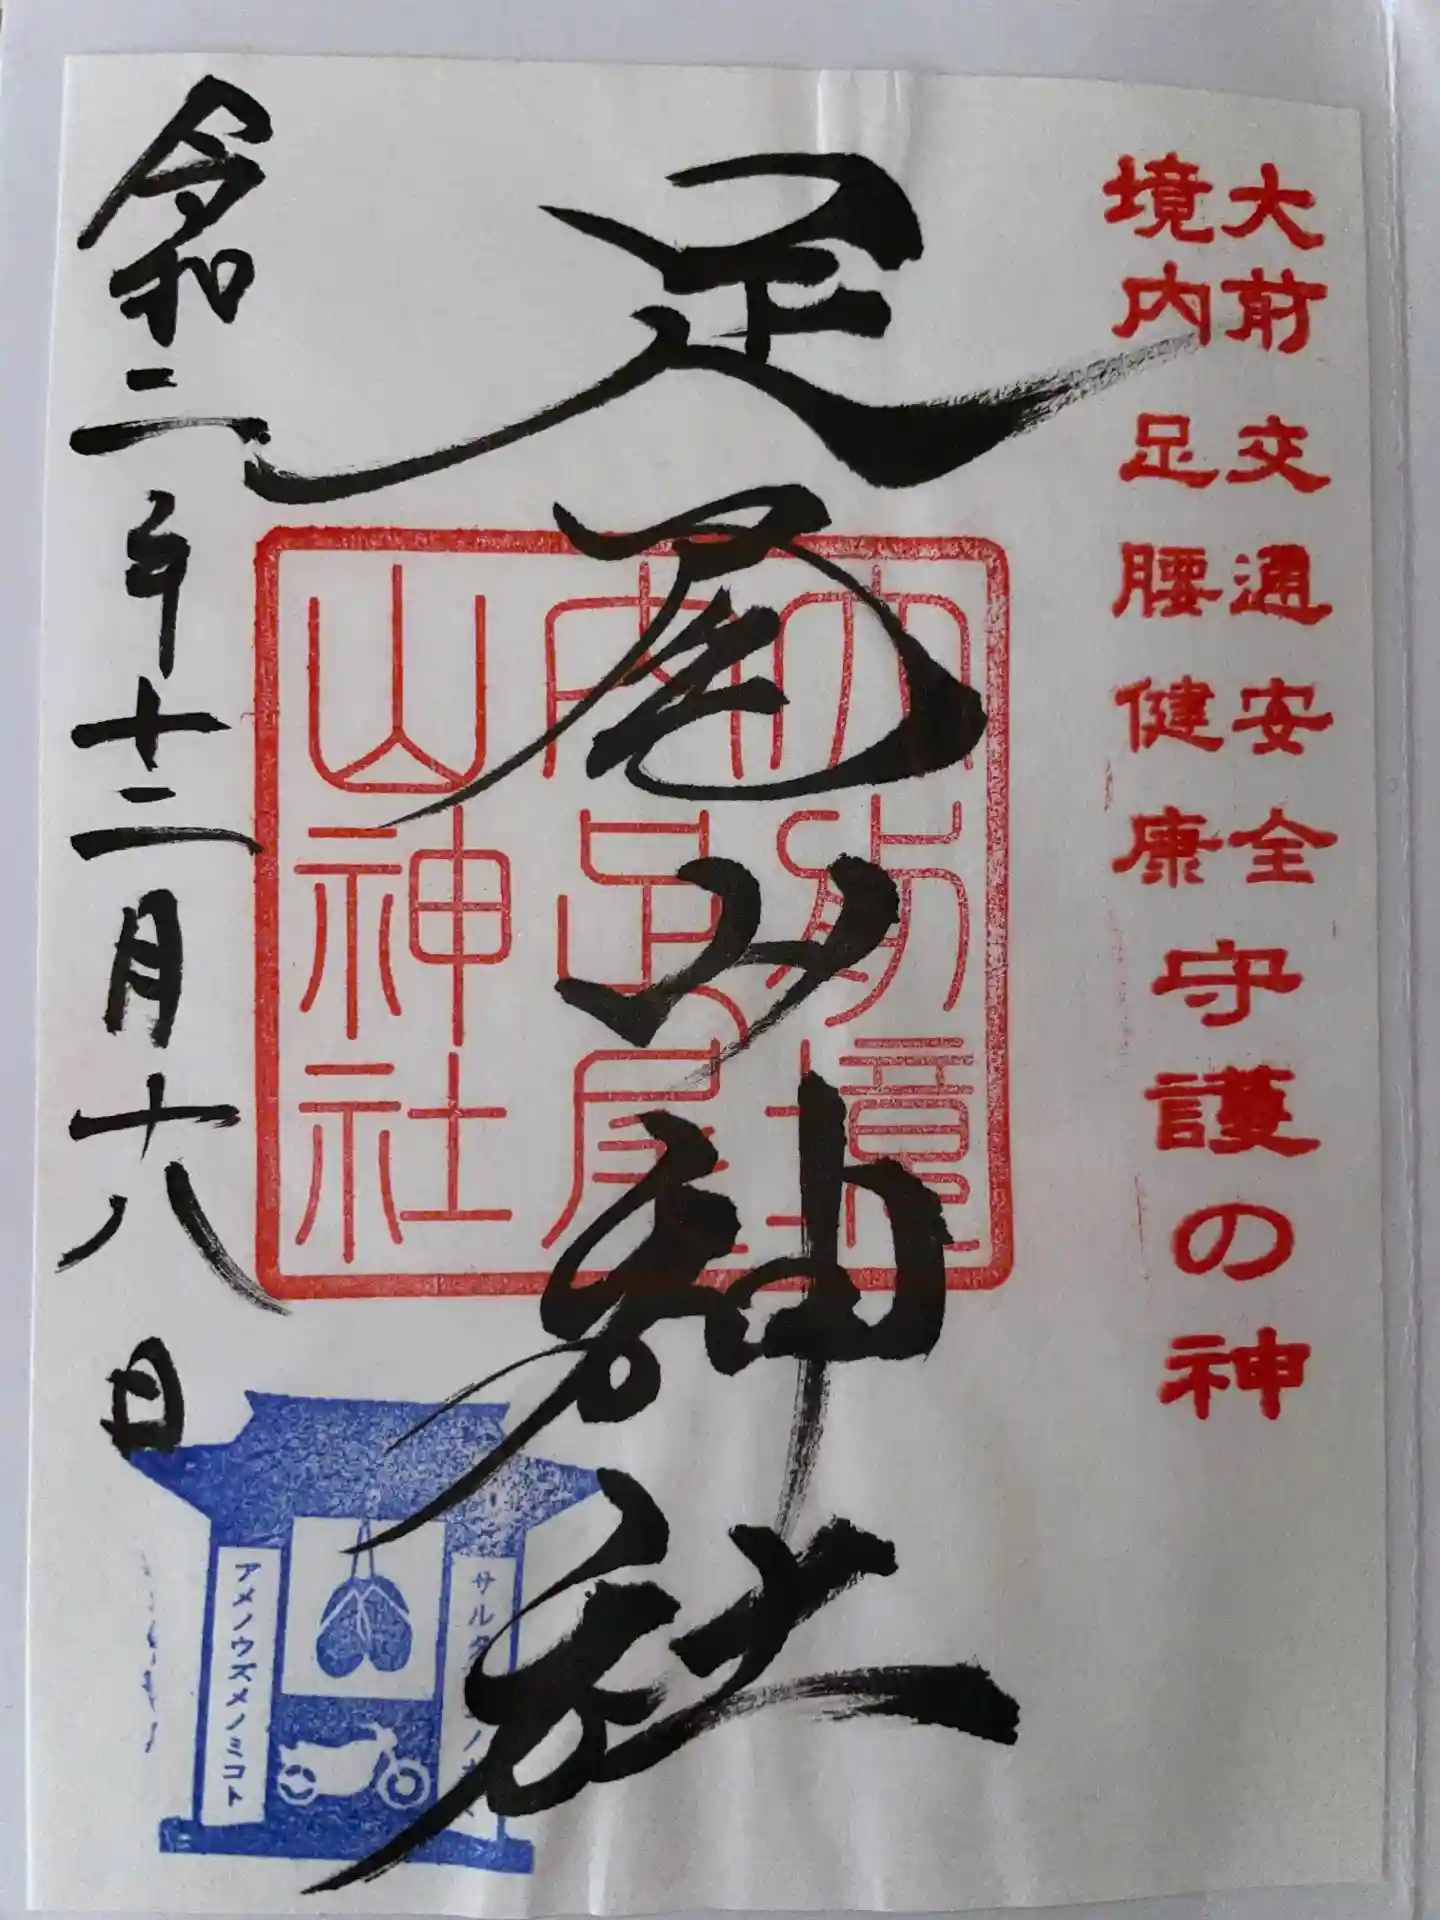 大前 交通安全
境内 足腰健康
守護の神
足尾山神社
大前境
内足尾
山神社
令和二年十二月十八日
サルタ
アメノウズメノミコト